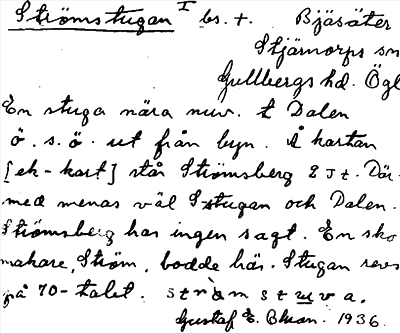 Strömstugan I bs. t. Bjäsäter
Stjärnorps sn
Gullbergs hd. Ögl
En stuga nära nuv. t Dalen
ö. s. ö. ut från byn. Å kartan
[ek-kart] står Strömsberg 2 J t. Där-
med menas väl S-stugan och Dalen.
Strömsberg har ingen sagt. En sko
makare, Ström, bodde här. Stugan revs
på 70-talet. stròmstuva.
Gustaf E. 1936.